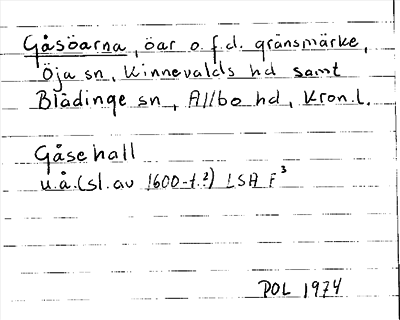 Gåsöarna, öar o.f.d. gränsmärke,
Öja sn, Kinnevalds hd samt
Blädinge sn, Allbo hd, Kron.l.
Gåsehall
u.å. (sl. av 1600-t.?) LSA F³
POL 1974